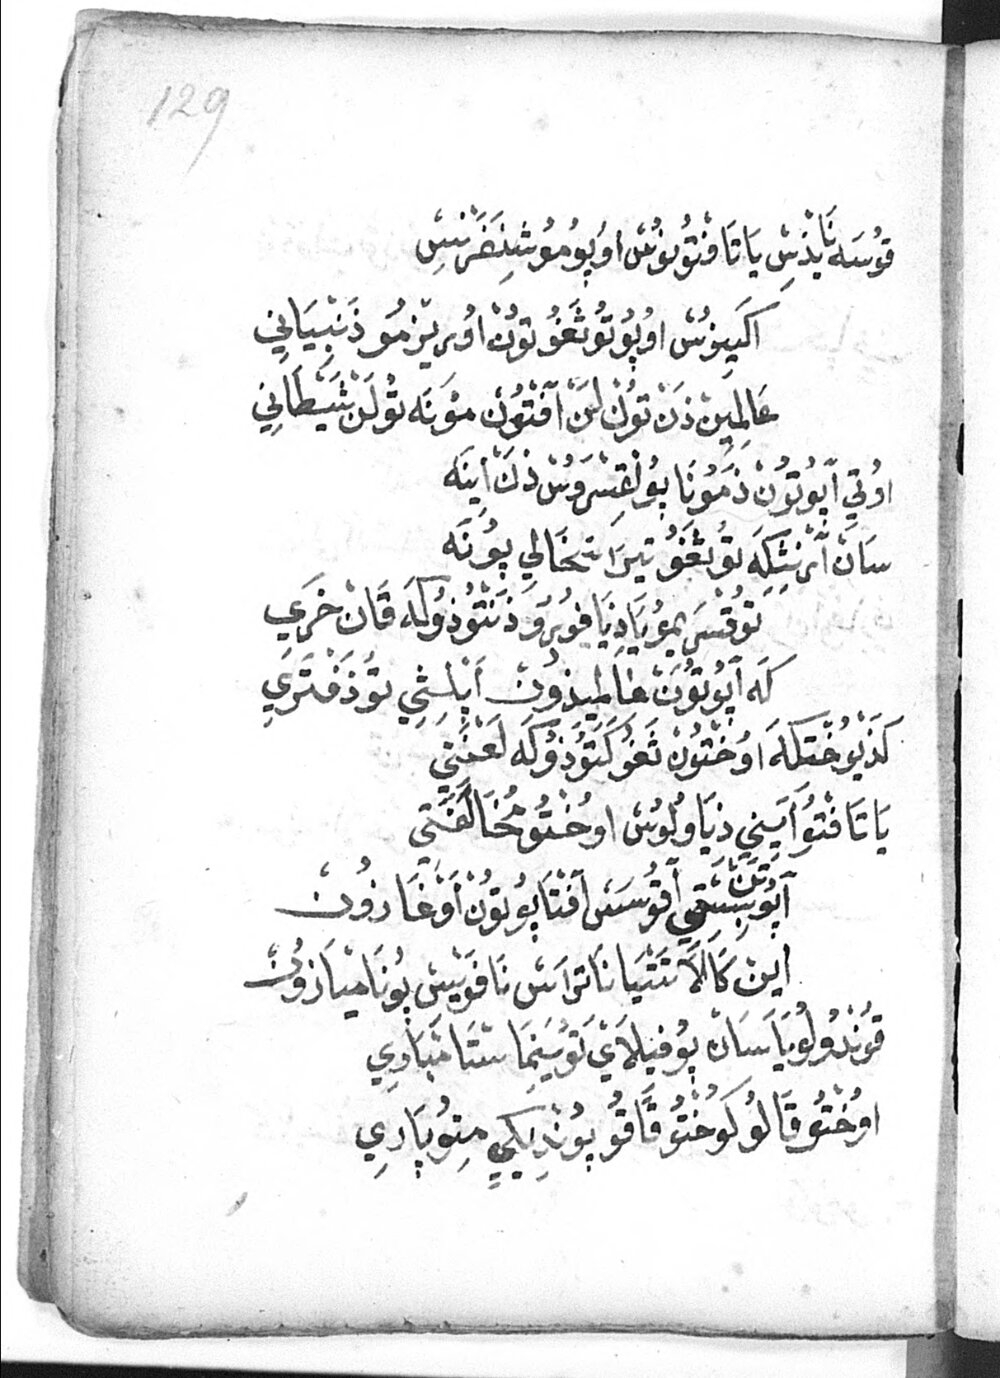 129
قوُسَه نَا يْذَسِ يَا تَا فْتوُ بوُسْ اوُ پوُ موُ شِذَفَرْنِسِ
اكَپِيوُسْ اوُ پوُ توُ ثَغوُ توُنْ اوُرِيْزمُو ذَنِبِيَانِي
عَالِمِينْ ذَنْ توُنْ لَنْ آفْتوُنْ موُنَه توُ لَنْ شَيْطَانِي
اوُتِي آپوُتوُنْ ذَموُنَا پوُ لْقِسِرَوسْ ذَنْ اَيِنَه
سَانْ اَرْنِثِكَه توُ ثَغوُ تِيرَا تَخَالِي پوُنَه
توُتْسَرَ يموُ يَا دِنْيَا فوُرَوَ ذَنْتوُ ذوُكَه قَانْ خَرَيِ
كَه آپوُتوُنْ ظَالِمِيذوُنْ اَپْلِثِي توُ ذَفْتَرَيِ
كَذَيوُ خْتِكَه اوُخْتوُنْ ثَغوُ كَتوُ ذوُكَه لَعْنَتِي
يَا تَا فْتوُ اَيَيِنِي دِنْيَا وُلوُسْ اوُخْتوُ مُخَالَفَتِي
آپوُتَنْ سِسَتِقِي آقوُسَسْ آفْتَا پوُتوُنْ اَوْغَارِزوُنْ
اَيِنْ كَالَا سَتْيَا نَا تْرَاسْ نَا فوَيْسْ پوُنَا مْيَا زوُنْ
قوُنْدُولوُ يَا سَانْ پوُ فِيلَايْ تَوُسَنِمَا سْتَا مْبَاوِي
اوُخْتوُ قَالوُ كوُخْتوُ قَاقوُ پوُنْدِيكِي مِتوُپَارِي